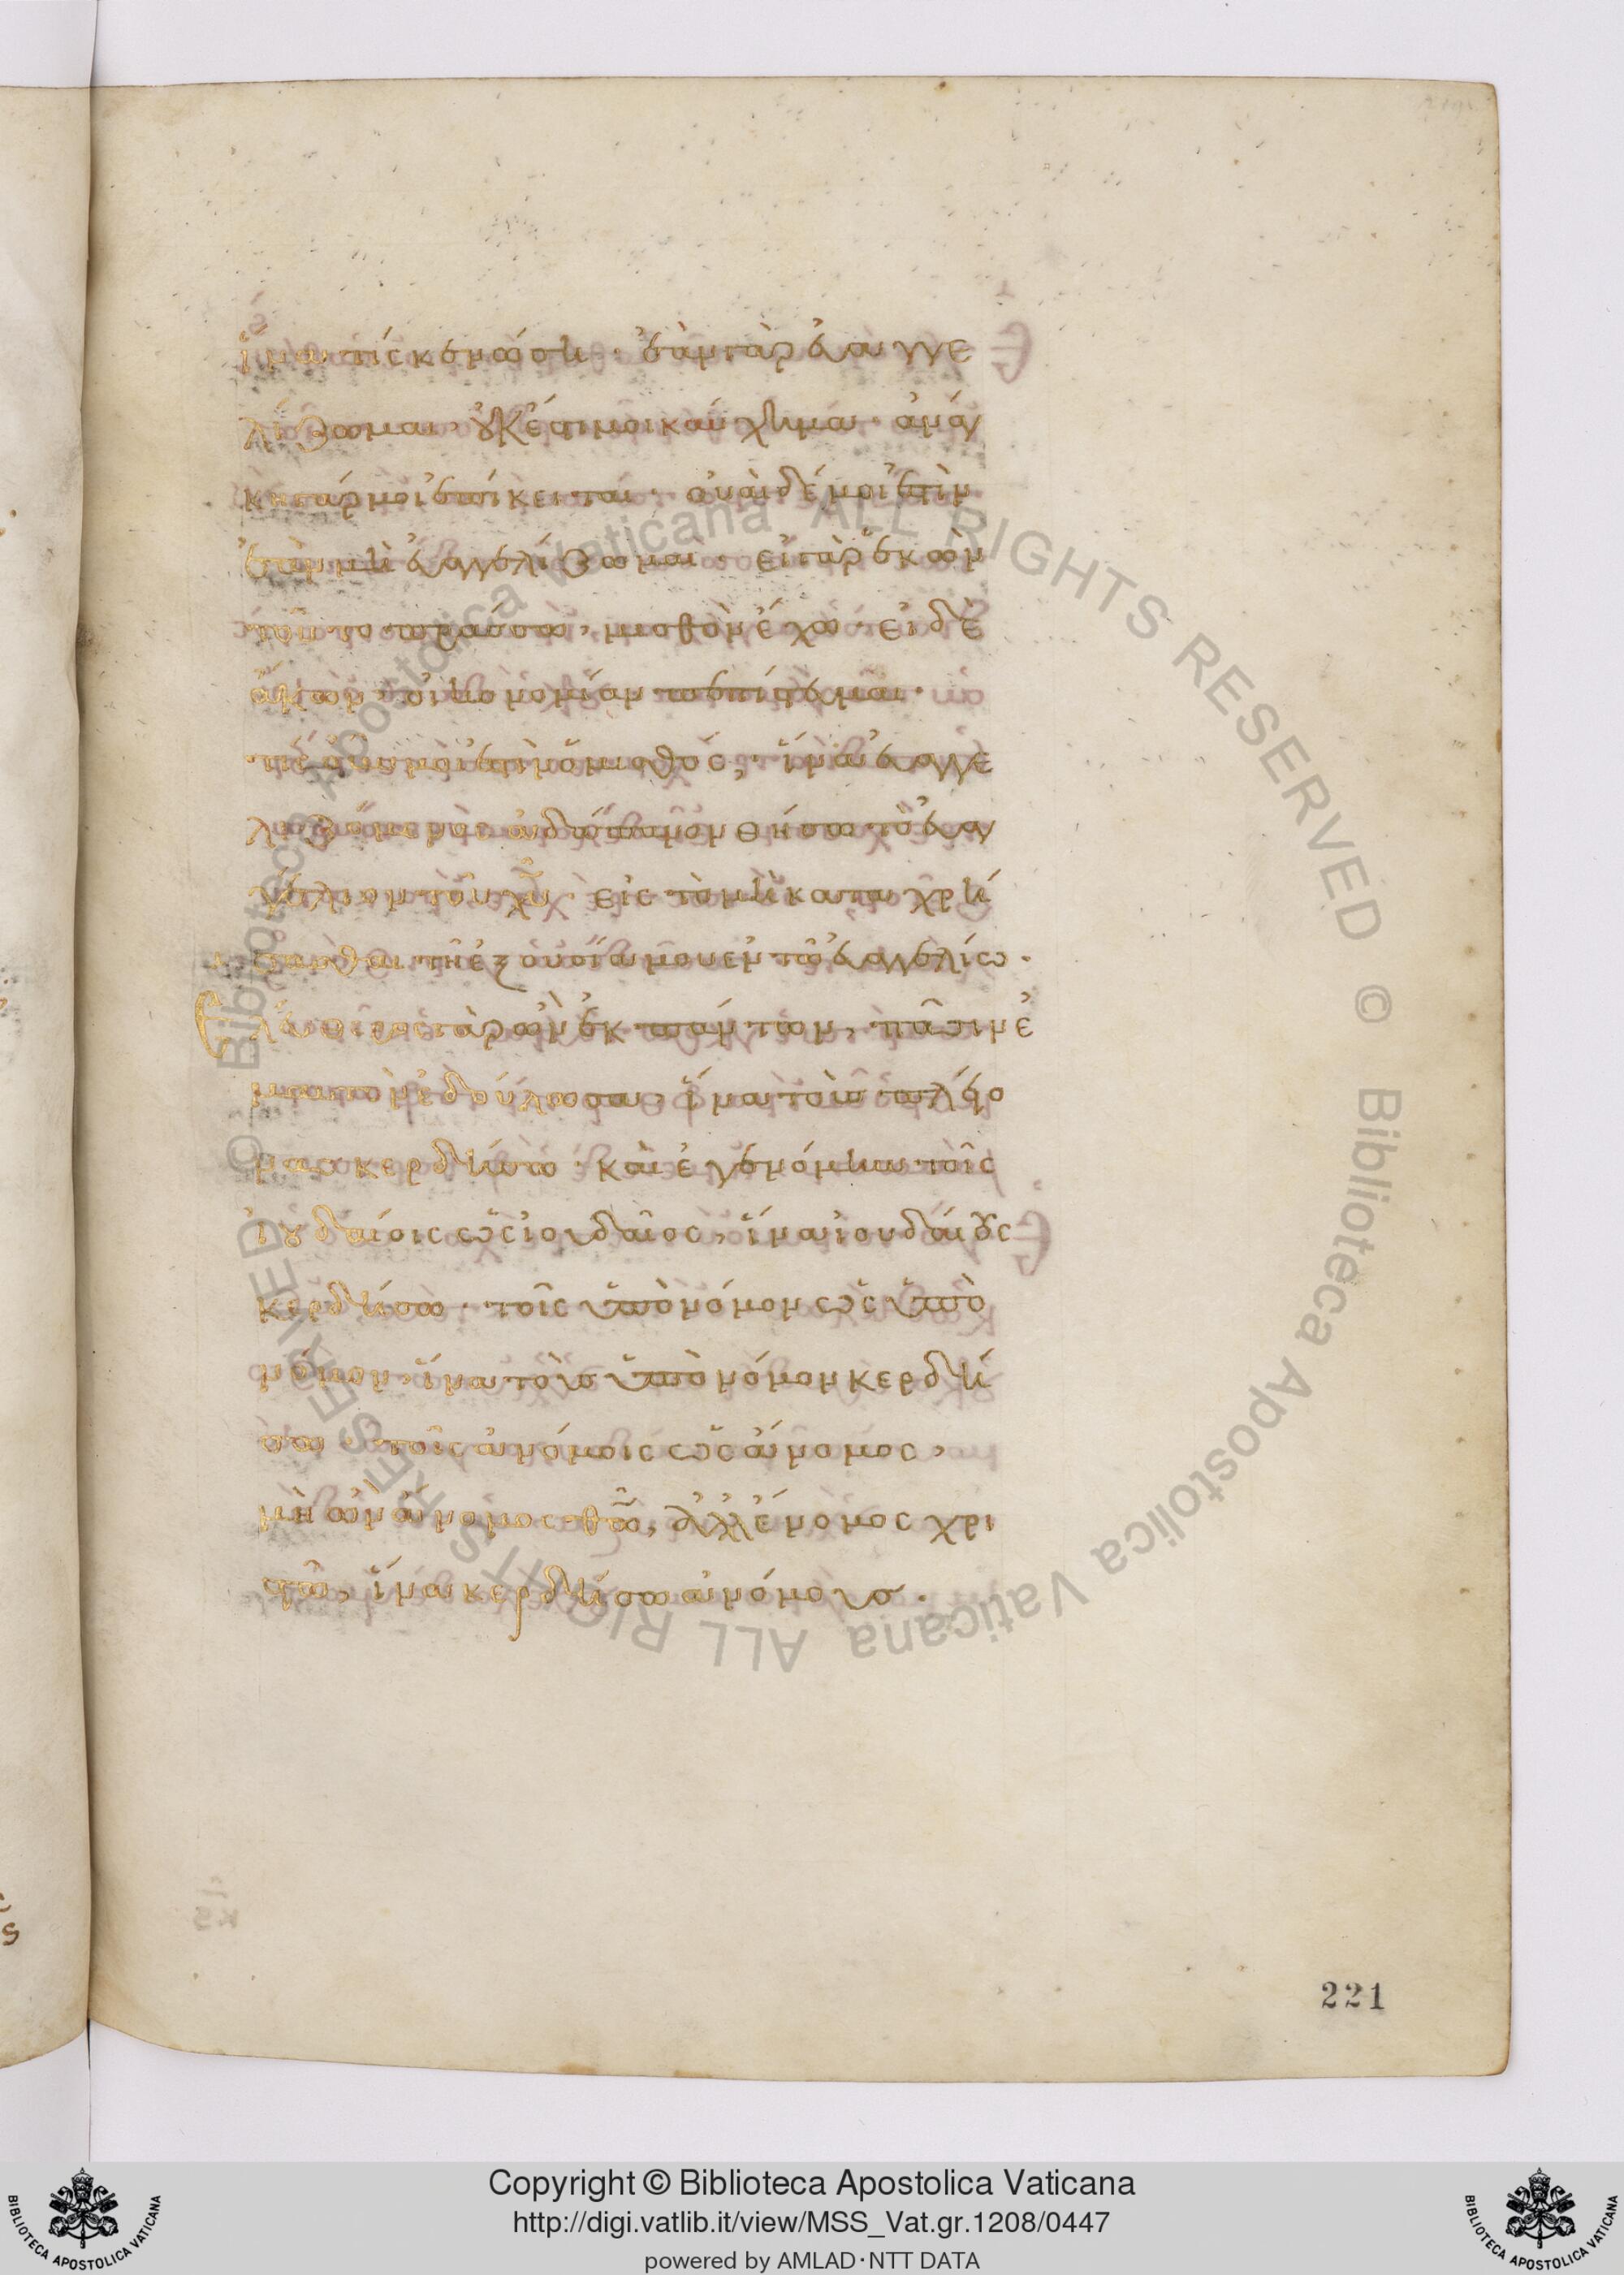 ἵνα τίς κενώσῃ· ἐὰν γὰρ εὐαγγε
λίζωμαι, οὐκ ἔστι μοι καύχημα· ἀνάγ
κη γάρ μοι ἐπίκειται· οὐαὶ δέ μοι ἐστὶν
ἐὰν μὴ εὐαγγελίζωμαι· εἰ γὰρ ἑκὼν
τοῦτο πράσσω, μισθὸν ἔχω· εἰ δὲ
ἄκων, οἰκονομίαν πεπίστευμαι·
τίς οὖν μοι ἐστὶν ὁ μισθός, ἵνα εὐαγγε
λιζόμενος ἀδάπανον θήσω τὸ εὐαγ
γέλιον τοῦ χυ· εἰς τὸ μὴ καταχρή
σασθαι τῇ ἐξουσίᾳ μου ἐν τῷ εὐαγγελίῳ·
Ἐλεύθερος γὰρ ὢν ἐκ πάντων, πᾶσιν ἐ
μαυτὸν ἐδούλωσα, ἵνα τοὺς πλείο
νας κερδήσω· καὶ ἐγενόμην τοῖς
ἰουδαίοις ὡς ἰουδαῖος, ἵνα ἰουδαίους
κερδήσω· τοῖς ὑπὸ νόμον ὡς ὑπὸ
νόμον, ἵνα τοὺς ὑπὸ νόμον κερδή
σω· τοῖς ἀνόμοις ὡς ἄνομος,
μὴ ὢν ἄνομος θῶ, ἀλλ' ἔννομος χρι
στῷ, ἵνα κερδήσω ἀνόμους.
221
Copyright © Biblioteca Apostolica Vaticana
http://digi.vatlib.it/view/MSS_Vat.gr.1208/0447
powered by AMLAD·NTT DATA
© Biblioteca Apostolica Vaticana ALL RIGHTS RESERVED © Biblioteca Apostolica Vaticana ALL RIGHTS RESERVED
BIBLIOTECA APOSTOLICA VATICANA
BIBLIOTECA APOSTOLICA VATICANA